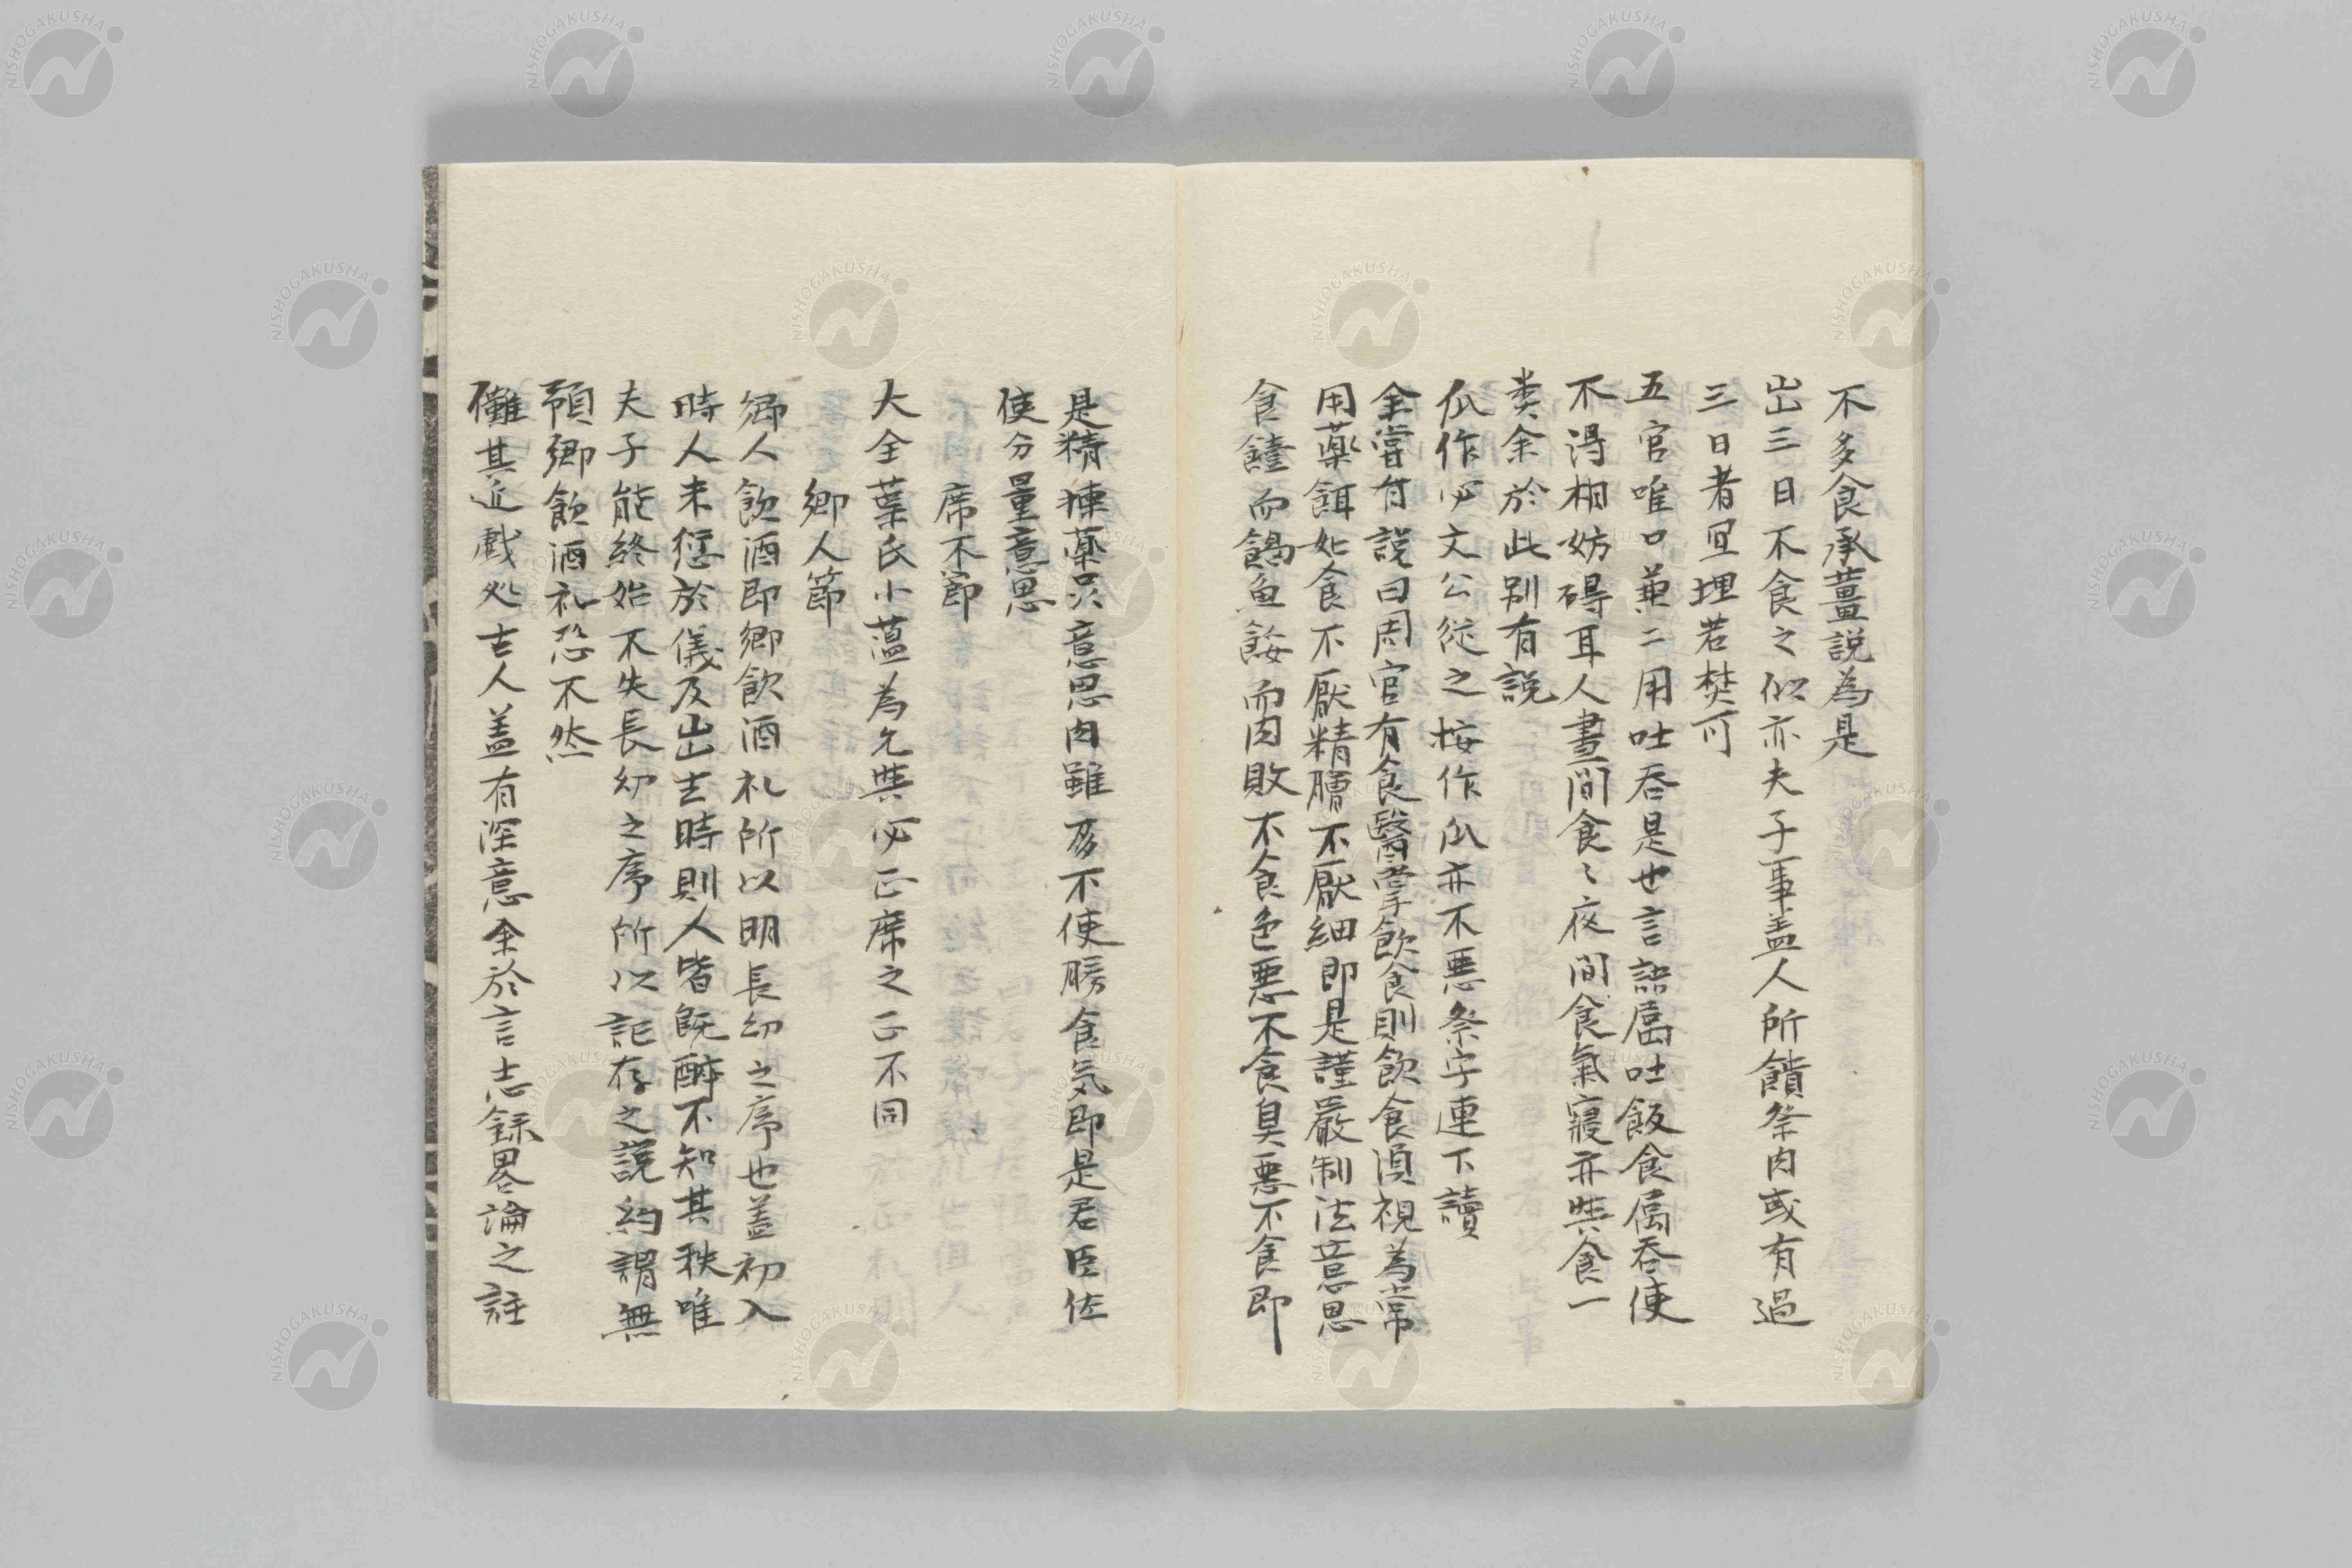 不多食承薑説為是
出三日不食之似亦夫子事盖人所饋祭肉或有過
三日者宜埋若焚可
五官唯口兼二用吐吞是也言語属吐飯食属吞使
不得相妨碍耳人晝間食〻夜間食氣寢亦與食一
类余於此別有説
瓜作必文公従之按作瓜亦不悪祭字連下讀
余嘗有説曰周官有食醫掌飲食則飲食須視為常
用薬餌如食不厭精膾不厭細即是謹嚴制法意思
食饐而餲魚餒而肉敗不食色悪不食臭悪不食即
是精揀薬品意思肉雖多不使勝食気即是君臣佐
使分量意思
席不節
大全葉氏小薀為允與必正席之正不同
郷人節
郷人飲酒即郷飲酒礼所以明長幼之序也盖初入
時人未愆於儀及出去時則人皆既醉不知其秩唯
夫子能終始不失長幼之序所以記存之説約謂無
預郷飲酒礼恐不然
儺其近戯処古人盖有深意余於言志録畧論之註
NISHOGAKUSHA